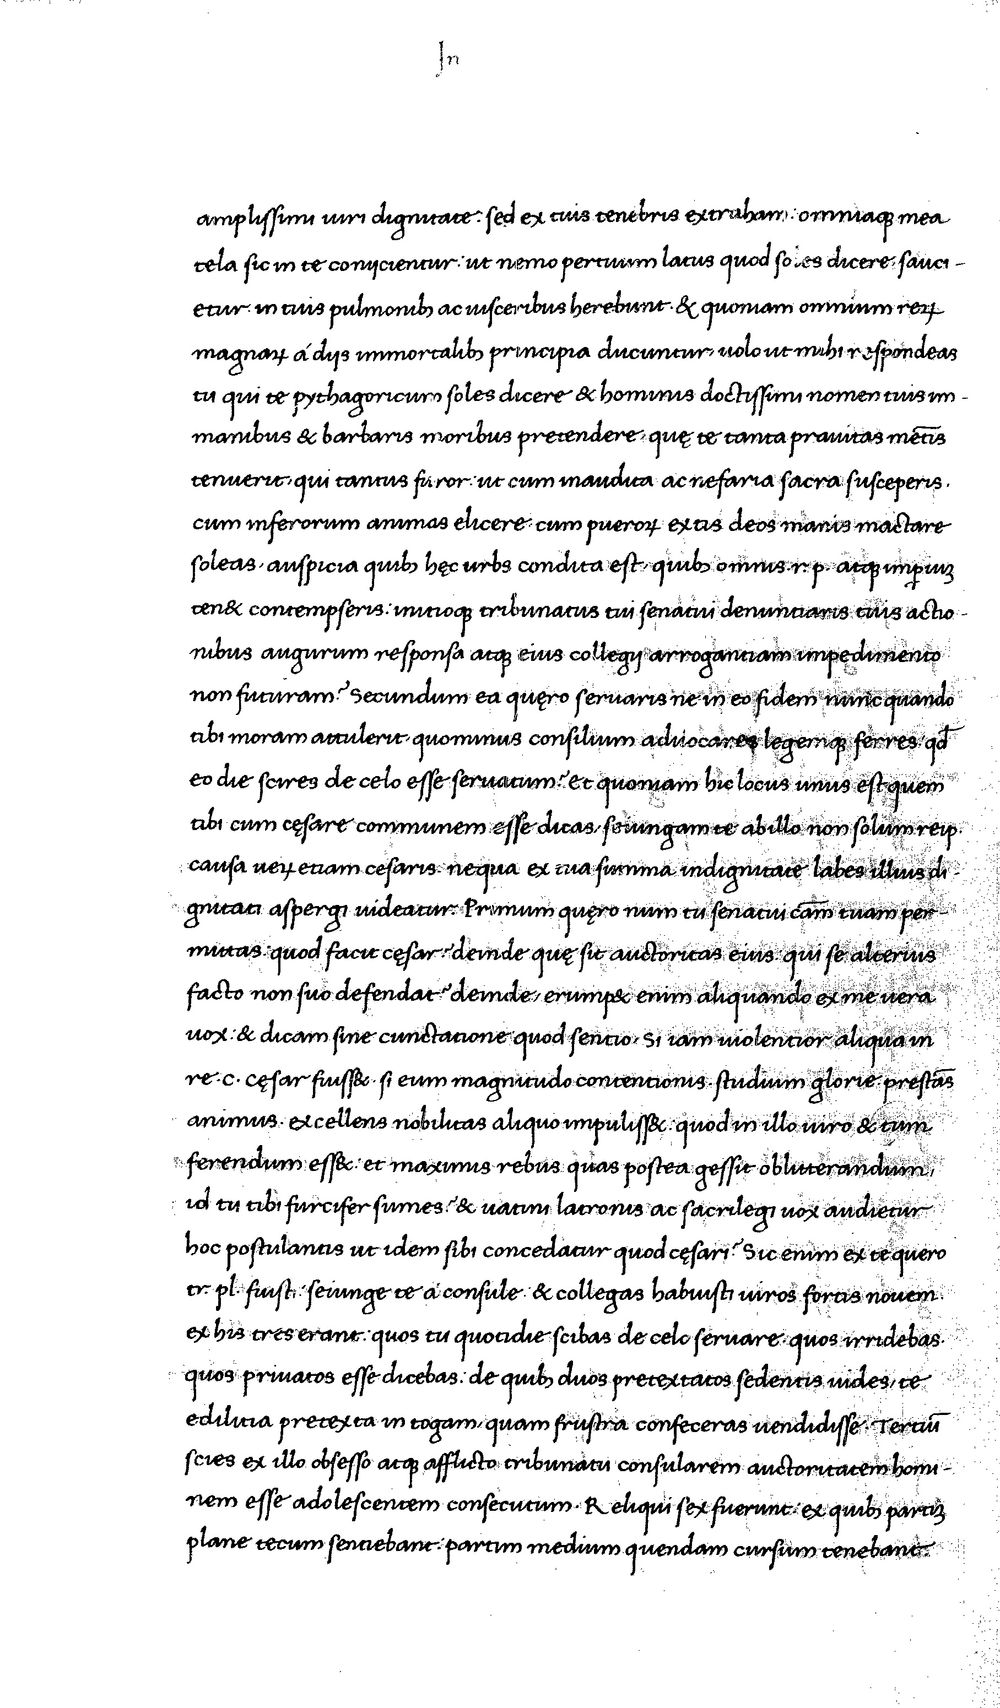 In
amplissimi uiri dignitate: sed ex tuis tenebris extraham: omniaqꝫ mea
tela sic in te conijcientur: ut nemo per tuum latus quod soles dicere sauci-
etur: in tuis pulmonibꝫ ac uisceribus herebunt. & quoniam omnium reꝝ
magnaꝝ á dijs immortalibꝫ principia ducuntur, uolo ut mihi respondeas
tu qui te pythagoricum soles dicere & hominis doctissimi nomen tuis im-
manibus & barbaris moribus pretendere, quę te tanta prauitas mētis
tenuerit, qui tantus furor: ut cum inaudita ac nefaria sacra susceperis.
cum inferorum animas elicere: cum pueroꝝ extis deos manis mactare
soleas, auspicia quibꝫ hęc urbs condita est, quibꝫ omnis r. p. atqꝫ imꝑiuꝫ
ten& contempseris: initioqꝫ tribunatus tui senatui denuntiaris tuis actio-
nibus augurum responsa atqꝫ eius collegij arrogantiam impedimento
non futuram? Secundum ea quęro seruaris ne in eo fidem nunc quando
tibi moram attulerit quominus consilium aduocares legemqꝫ ferres qđ
eo die scires de celo esse seruatum? Et quoniam hic locus unus est quem
tibi cum cęsare communem esse dicas, seiungam te ab illo non solum reip.
causa ueꝝ etiam cesaris. nequa ex tua summa indignitate labes illius di-
gnitati aspergi uideatur. Primum quęro num tu senatui cām tuam per-
mittas: quod facit cęsar? deinde quę sit auctoritas eius qui se alterius
facto non suo defendat? deinde, erump& enim aliquando ex me uera
uox: & dicam sine cunctatione quod sentio. Si iam uiolentior aliqua in
re .c. cęsar fuiss&. si eum magnitudo contentionis. studium glorie prestās
animus. excellens nobilitas aliquo impuliss&. quod in illo uiro & tum
ferendum ess&. et maximis rebus quas postea gessit obliterandum,
id tu tibi furcifer sumes? & uatini latronis ac sacrilegi uox audietur
hoc postulantis ut idem sibi concedatur quod cęsari? Sic enim ex te quero
tr. pl. fuisti. seiunge te á consule. & collegas habuisti uiros fortis nouem.
ex his tres erant. quos tu quotidie scibas de celo seruare. quos irridebas.
quos priuatos esse dicebas: de quibꝫ duos pretextatos sedentis uides, te
edilitia pretexta in togam, quam frustra confeceras uendidisse. Tertiū
scies ex illo obsesso atqꝫ afflicto tribunatu consularem auctoritatem homi-
nem esse adolescentem consecutum. Reliqui sex fuerunt: ex quibꝫ partiꝫ
plane tecum sentiebant: partim medium quendam cursum tenebant.